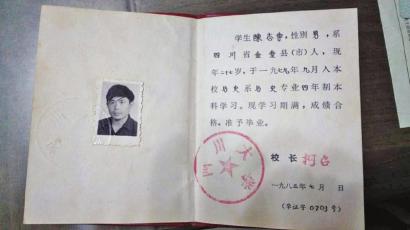 学生陳志書，性别男，系
四川省金堂县(市)人，现
年二十七岁，于一九七九年九月入本
校历史系历史专业四年制本
科学习。现学习期满，成绩合
格，准予毕业。
校 长
一九八三年七月 日
(毕证字0203号)